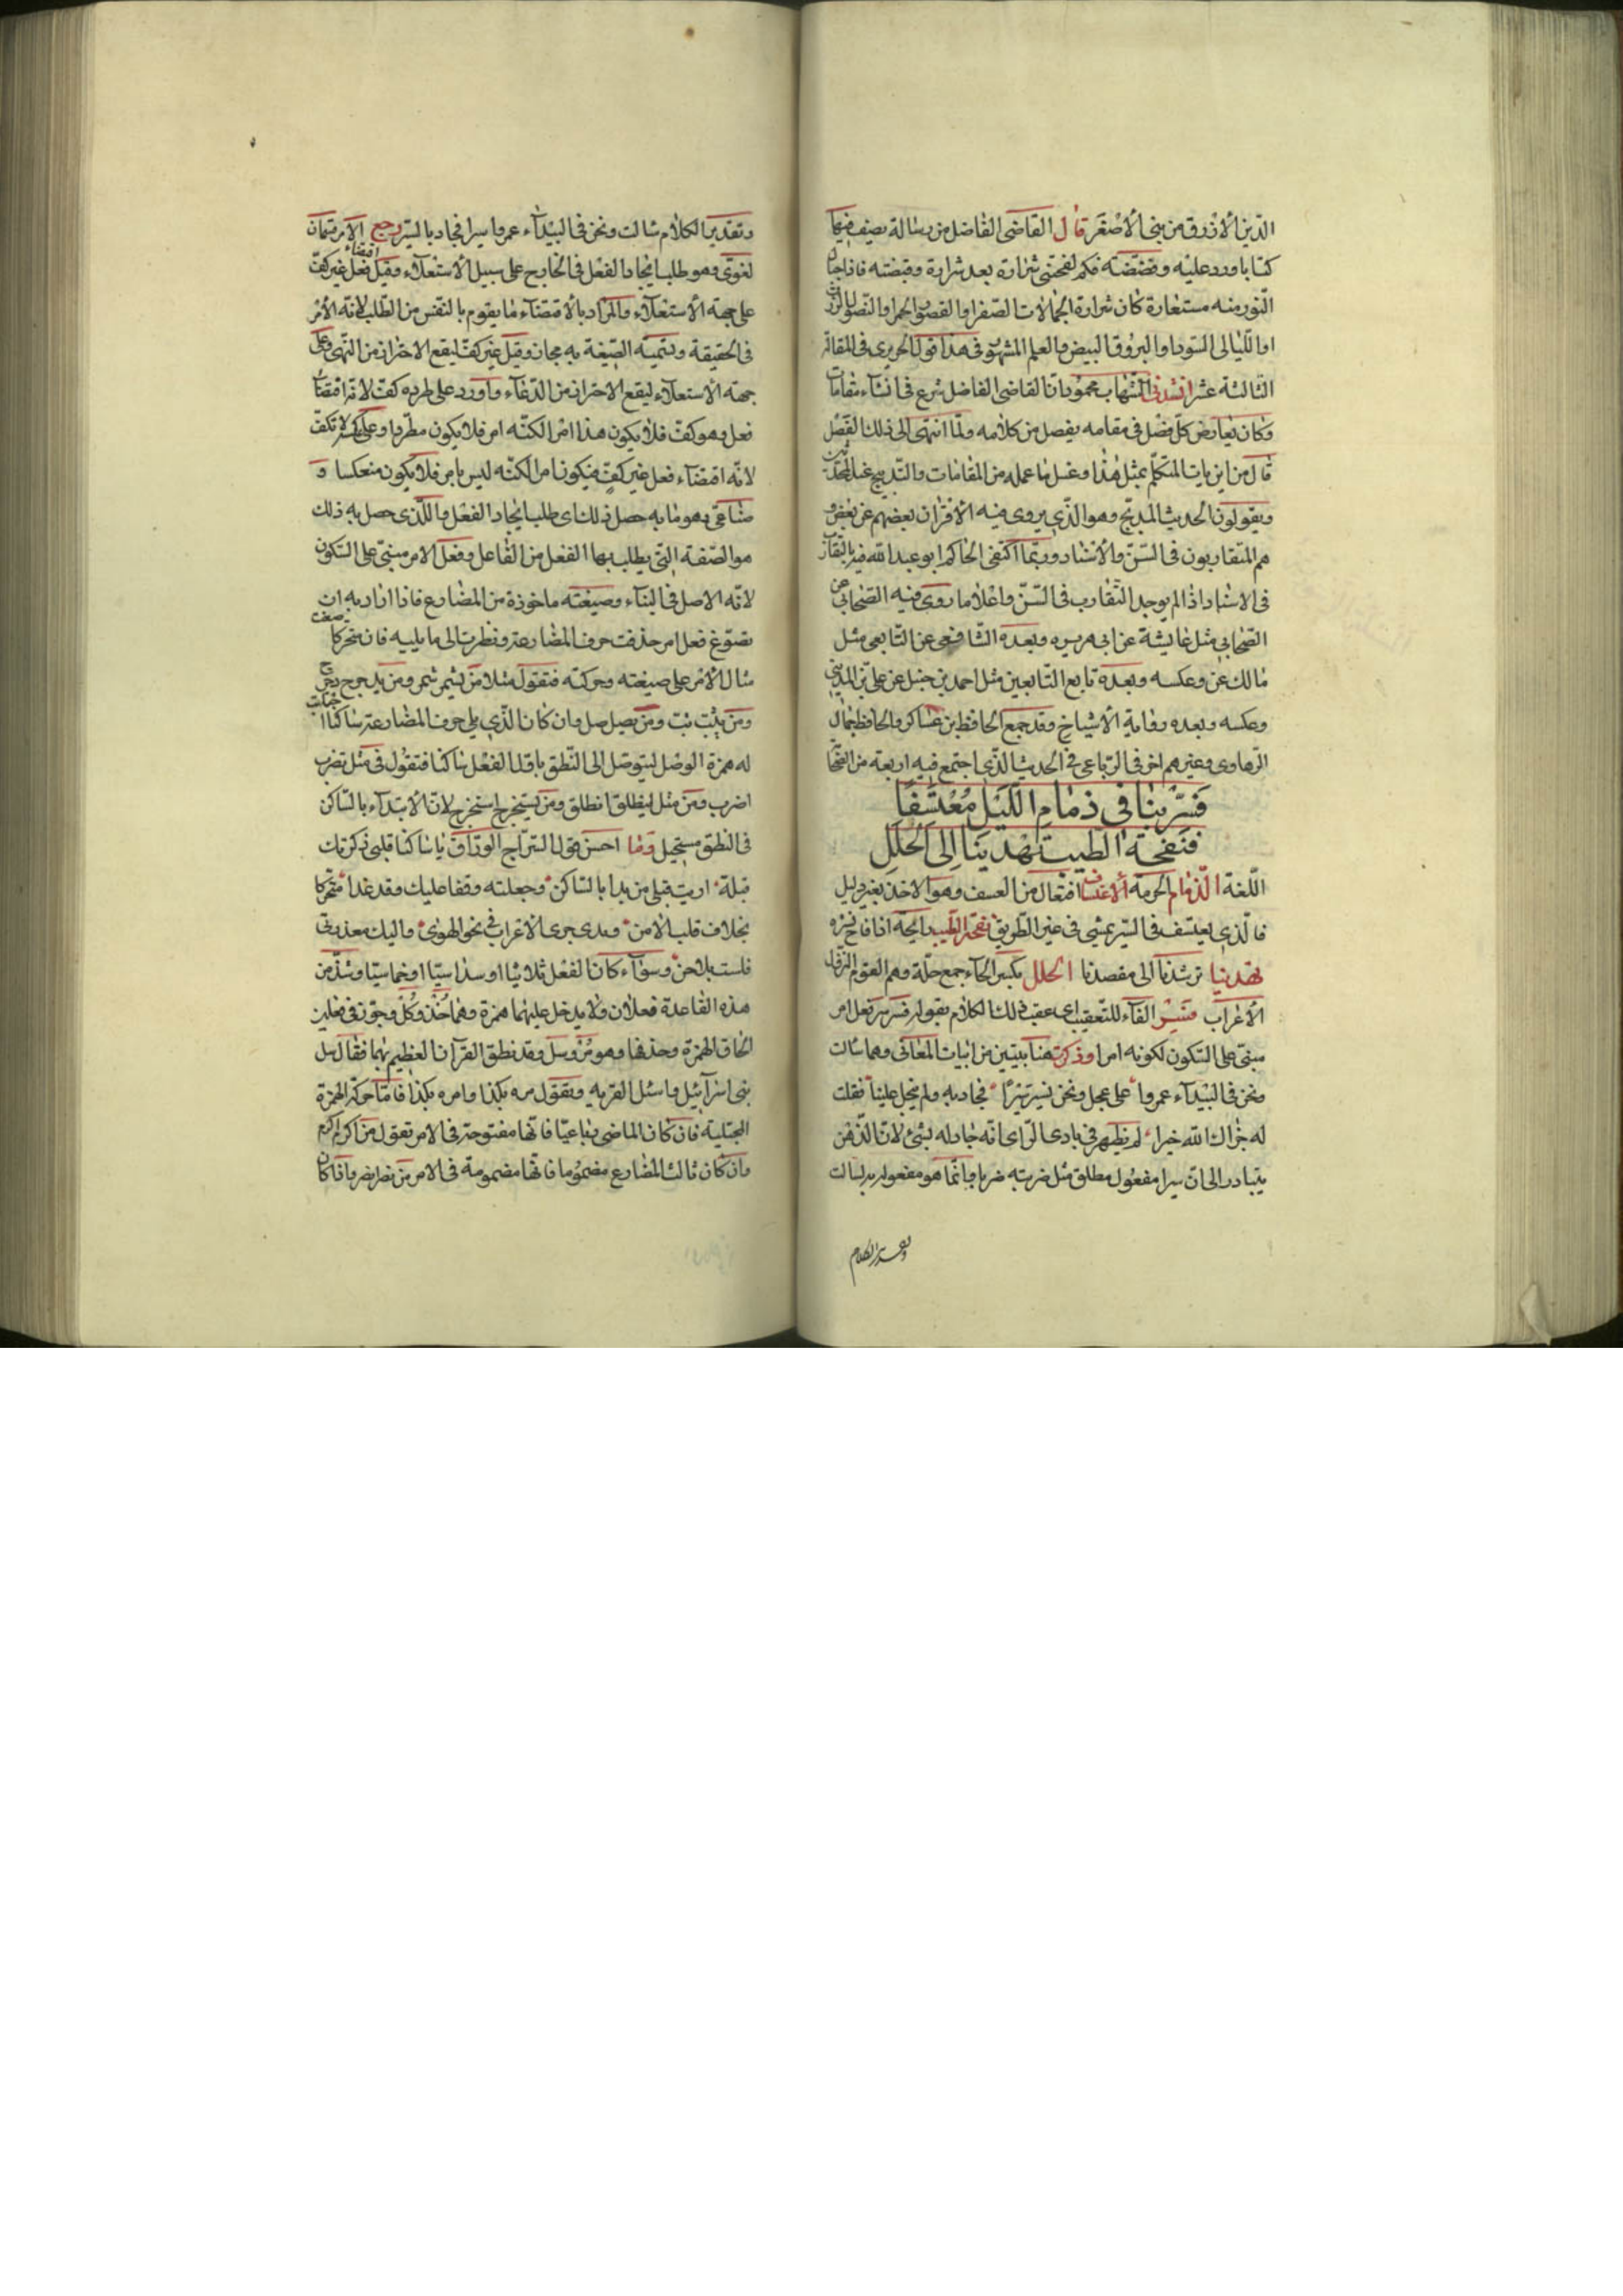 الدين الأزرق من بنى الأصغر قال القاضى الفاضل من رسالة يصف فيها
كتابا ورد عليه وفضضته فكم لفحتنى شرارة بعد شرارة وقبضته فاذا جار
النور منه مستعارة كان شرارة الجمالات الصفر او القصور الحمر او النصول الزرق
او الليالى السود او البروق البيض والعلم المشهور فى هذا قول الحريرى فى المقالة
الثالثة عشر انشدنى الشهاب محمود ان القاضى الفاضل شرع فى انشاء مقامات
وكان يعارض كل فصل فى مقامه بفصل من كلامه ولما انتهى الى ذلك الفصل
قال من اين ياتى المتكلم بمثل هذا وغسل ما عمله من المقامات والتدبيج عند المحدثين
ويقولون الحديث المدبج وهو الذى يروى فيه الأقران بعضهم عن بعض و
هم المتقاربون فى السن والأسناد وربما اكتفى الحاكم ابو عبد الله فيه بالتقارب
فى الاسناد اذا لم يوجد التقارب فى السن واعلا ما روى فيه الصحابى عن
الصحابى مثل عايشة عن ابى هريره وبعده الشافعى عن التابعى مثل
مالك عن وعكسه وبعده تابع التابعين مثل احمد بن حنبل عن على بن المدينى
وعكسه وبعده رواية الأشياخ وقد جمع الحافظ بن عساكر والحافظ جمال
الرهاوى وغيرهم اخر فى الرباعى فى الحديث الذى اجتمع فيه اربعة من الصحا
فسر بنا فى ذمام الليل معتسفا
فنفحة الطيب تهدينا الى الحلل
اللغة الذمام الحرمة ألاعتساف افتعال من العسف وهو الاخذ بغير دليل
فالذى يعتسف فى السير يمشى فى غير الطريق نفحة الطيب رايحة اذا فاح نشره
تهدينا ترشدنا الى مقصدنا الحلل بكسر الحآء جمع حلة وهم القوم النزول
الأعراب فسر الفآء للتعقيب اى عقب ذلك الكلام بقوله فسر سر فعل امر
مبنى على السكون لكونه امرا وذكرت هنا بيتين من ابيات المعانى وهما سالت
ونحن فى البيدآء عمروا على عجل ونحن نسير سيرا فجاد به ولم يبخل علينا فقلت
له جزاك الله خيرا لم يظهر فى بادى الراى انه جاد له بشئ لان الذهن
يتبادر الى ان سيرا مفعول مطلق مثل ضربته ضربا وانما هو مفعول به لسالت
وتقدير الكلام
وتقدير الكلام سالت ونحن فى البيدآء عمروا سيرا فجاد بالسير رجع الامر قسمان
لغوى وهو طلب ايجاد الفعل فى الخارج على سبيل الأستعلآء وقيل اقتضاء فعل غير كف
على جهة الأستعلآء والمراد بالأقتضآء ما يقوم بالنفس من الطلب لانه الأمر
فى الحقيقة وتسمية الصيغة به مجاز وقيل غير كف ليقع الاحتراز من النهى وعلى
جهة الأستعلآء ليقع الاحتراز من الدعآء واورد على طرده كف لانه اقتضاء
فعل وهو كف فلا يكون هذا امرا لكنه امر فلا يكون مطردا وعلى عكسه لا تكف
لانه اقتضآء فعل غير كف فيكون امرا لكنه ليس بامر فلا يكون منعكسا و
صناعى وهو ما به حصل ذلك اى طلب ايجاد الفعل والذى حصل به ذلك
هو الصفة التى يطلب بها الفعل من الفاعل وفعل الامر مبنى على السكون
لانه الاصل فى البناء وصيغته ماخوذة من المضارع فاذا اراد به ان
تصوغ فعل امر حذفت حرف المضارعة ونظرت الى ما يليه فان متحركا صغت
مثال الأمر على صيغته وحركته فتقول مثلا من يشمر شمر ومن يدحرج دحرج
ومن يثب ثب ومن يصل صل وان كان الذى يلى حرف المضارعة ساكنا اجتلبت
له همزة الوصل ليتوصل الى النطق باول الفعل ساكنا فتقول فى مثل تضرب
اضرب ومن مثل ينطلق انطلق ومن يستخرج استخرج لان الأبتدآء بالساكن
فى النطق مستحيل وما احسن قول السراج الوراق يا ساكنا قلبى ذكرتك
قبله اريت قبلى من بدا بالساكن وجعلته وقفا عليك وقد غدا متحركا
بخلاف قلب الامن وبدى جرى الاعراب فى نحو الهوى واليك معذرتى
فلست بلاحن وسوآء كان الفعل ثلاثيا او سداسيا او خماسيا وشذ من
هذه القاعدة فعلان ولا يدخل عليهما همزة وهما خذ وكل وجوز فى فعلين
الحاق الهمزة وحذفها وهو مر وسل وقد نطق القرآن العظيم بهما فقال سل
بنى اسرآئيل واسئل القريه وتقول مره بكذا وامره بكذا فاما حركة الهمزة
المجتلبة فان كان الماضى رباعيا فانها مفتوحة فى الامر تقول من اكرم اكرم
وان كان ثالث المضارع مضموما فانها مضمومة فى الامر من نصر انصر واذا كان